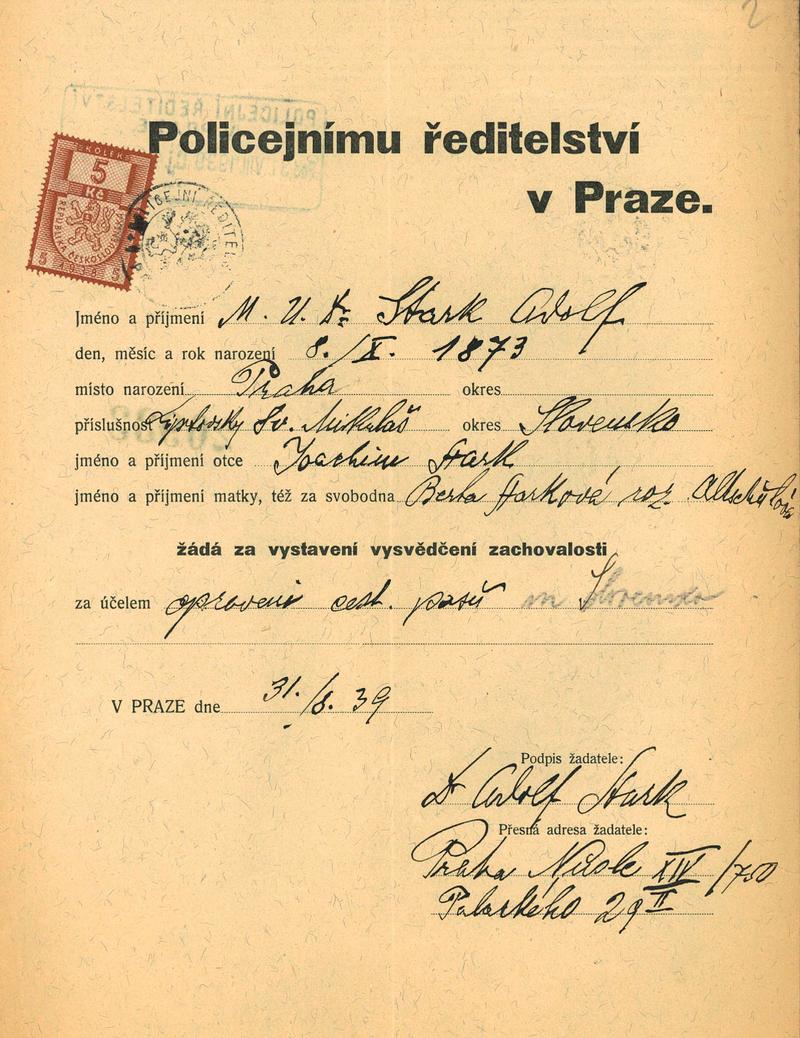 2
Policejnímu ředitelství
v Praze.
KOLEK
5
Kč
REPUBLIKA ČESKOSLOVENSKÁ
5 1938 5
POLICEJNÍ ŘEDITEL
Jméno a příjmení M. U. Dr Stark Adolf
den, měsíc a rok narození 8./X. 1873
místo narození Praha okres
příslušnost Liptovský Sv. Mikuláš okres Slovensko
jméno a příjmení otce Joachim Stark
jméno a příjmení matky, též za svobodna Berta Starková roz. Altschulová
žádá za vystavení vysvědčení zachovalosti
za účelem opravení cest. pasu na Slovensko
V PRAZE dne 31./8. 39
Podpis žadatele:
Dr Adolf Stark
Přesná adresa žadatele:
Praha Nusle XIV /750
Palackého 29 II